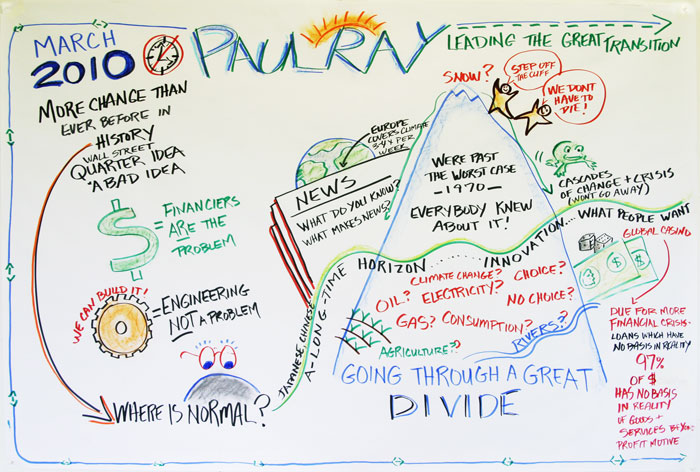 MARCH
2010
PAUL RAY
LEADING THE GREAT TRANSITION
MORE CHANGE THAN
EVER BEFORE IN
HISTORY
WALL STREET
QUARTER IDEA
"A BAD IDEA
$ = FINANCIERS
ARE THE
PROBLEM
WE CAN BUILD IT!
= ENGINEERING
NOT A PROBLEM
WHERE IS NORMAL?
EUROPE
COVERS CLIMATE
3-4X PER
WEEK
NEWS
WHAT DO YOU KNOW?
WHAT MAKES NEWS?
SNOW?
STEP OFF
THE CLIFF
WE DON'T
HAVE TO
DIE!
WERE PAST
THE WORST CASE
-1970-
EVERYBODY KNEW
ABOUT IT!
CASCADES
OF CHANGE + CRISIS
(WON'T GO AWAY)
JAPANESE, CHINESE
A-LONG-TIME HORIZON ...... INNOVATION... WHAT PEOPLE WANT
CLIMATE CHANGE?
CHOICE?
OIL?
ELECTRICITY?
NO CHOICE?
GAS?
CONSUMPTION?
RIVERS?
AGRICULTURE??
GOING THROUGH A GREAT
DIVIDE
GLOBAL CASINO
$ $
DUE FOR MORE
FINANCIAL CRISIS-
LOANS WHICH HAVE
NO BASIS IN REALITY
97%
OF $
HAS NO BASIS
IN REALITY
OF GOODS +
SERVICES BEYON
PROFIT MOTIVE